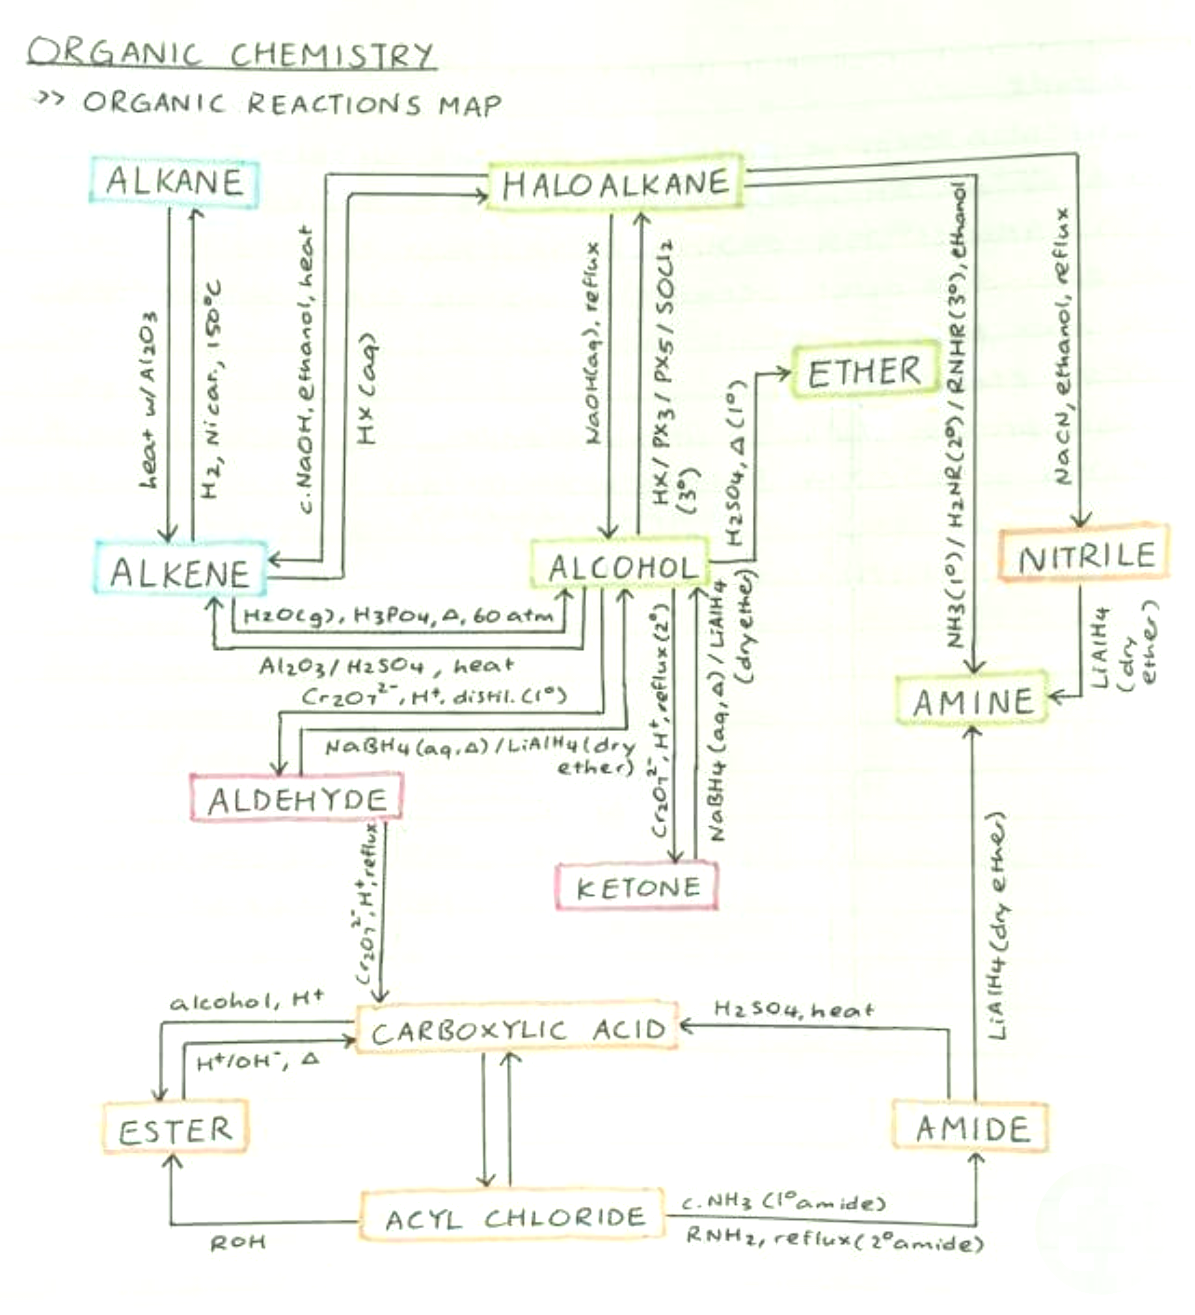 ORGANIC CHEMISTRY
>> ORGANIC REACTIONS MAP
ALKANE
HALOALKANE
heat w/Al2O3
H2, Ni cat., 150°C
c.NaOH, ethanol, heat
HX (aq)
NaOH(aq), reflux
HX/ PX3 / PX5 / SOCl2
(3°)
H2SO4, Δ (1°)
ETHER
NH3(1°) / H2NR(2°) / RNHR(3°), ethanol
NaCN, ethanol, reflux
ALKENE
ALCOHOL
NITRILE
H2O(g), H3PO4, Δ, 60 atm
Al2O3/ H2SO4, heat
Cr2O7²⁻, H⁺, distil. (1°)
NaBH4 (aq, Δ) / LiAlH4 (dry
ether)
Cr2O7²⁻, H⁺, reflux (2°)
NaBH4 (aq, Δ) / LiAlH4
(dry ether)
LiAlH4
(dry
ether)
AMINE
ALDEHYDE
KETONE
Cr2O7²⁻, H⁺, reflux
LiAlH4 (dry ether)
alcohol, H⁺
CARBOXYLIC ACID
H2SO4, heat
H⁺/OH⁻, Δ
ESTER
AMIDE
ACYL CHLORIDE
c.NH3 (1° amide)
RNH2, reflux (2° amide)
ROH